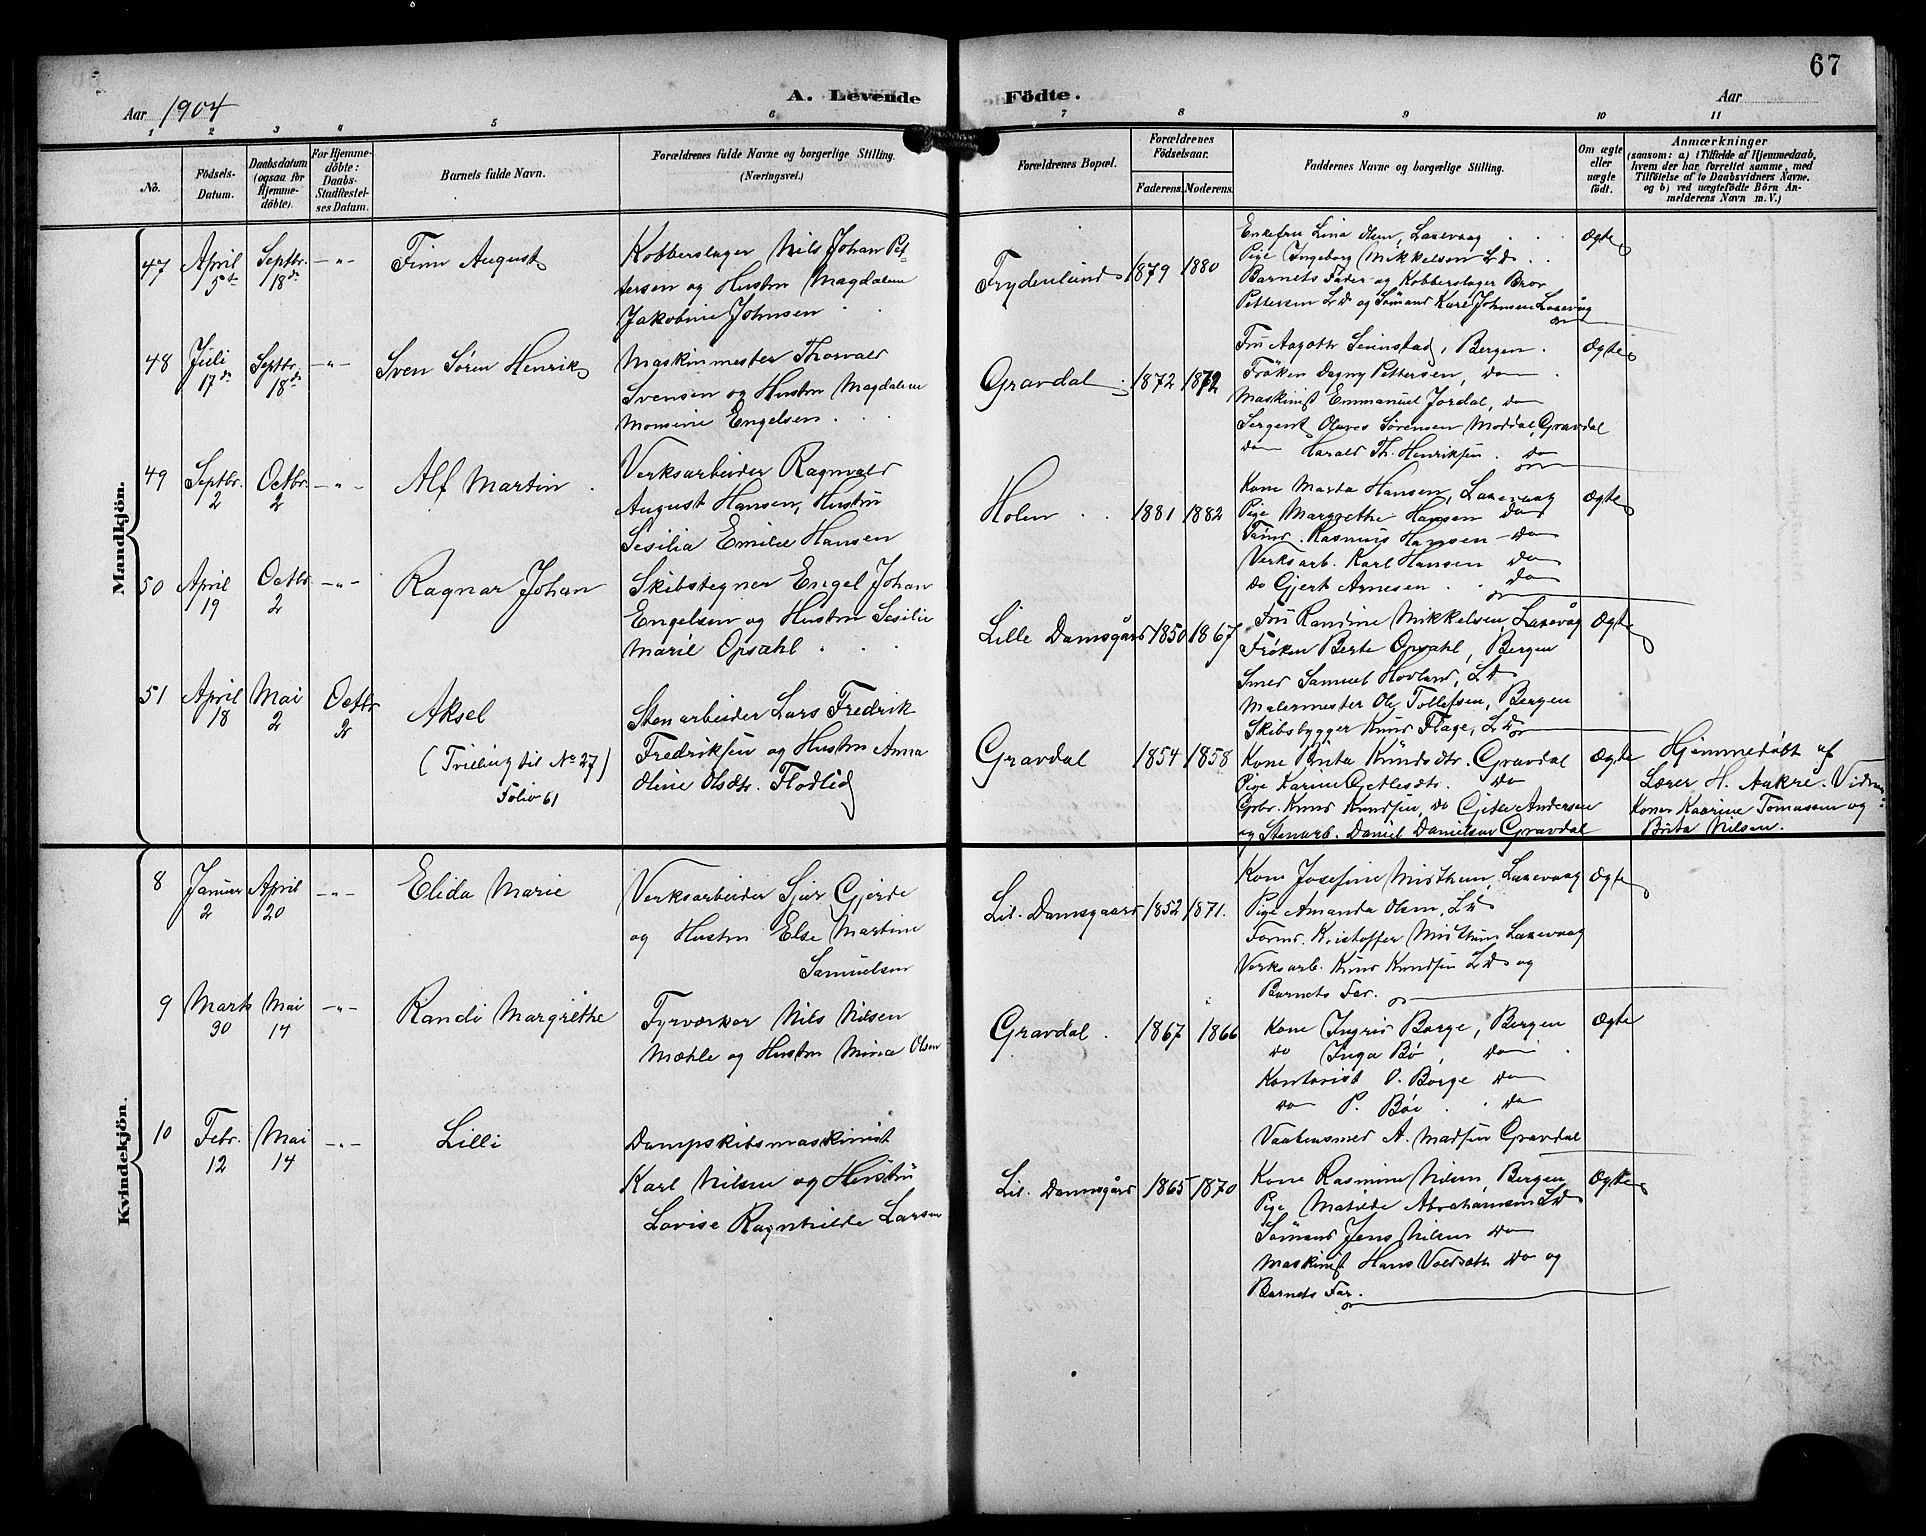 67
Aar 1904
A. Levende Födte.
Aar
1 2 3 4 5 6 7 8 9 10 11
No.
Födsels-
Datum.
Daabsdatum
(ogsaa for
Hjemme-
döbte).
For Hjemme-
döbte:
Daabs-
Stadfæstel-
ses Datum.
Barnets fulde Navn.
Forældrenes fulde Navne og borgerlige Stilling.
(Næringsvei.)
Forældrenes Bopæl.
Forældrenes
Födselsaar.
Faderens. Moderens.
Faddernes Navne og borgerlige Stilling.
Om ægte
eller
uægte
födt.
Anmærkninger
(saasom: a) i Tilfælde af Hjemmedaab,
hvem der har forrettet samme, med
Tilföielse af to Daabsvidners Navne,
og b) ved uægtefödte Börn An-
melderens Navn m. V.)
Mandkjön.
47 April 5te Septbr. 18de -"- Finn August
Kobberslager Nils Johan Pet-
tersen og Hustru Magdalena
Jakobine Johnsen
Frydenlund 1879 1880
Enkefru Lina Olsen, Laxevaag
Pige Ingeborg Mikkelsen Ld
Barnets Fader og Kobberslager Bror
Pettersen Ld og Sömand Karl Johnsen Laxevaag
Ægte
48 Juli 17de Septbr. 18de -"- Sven Søren Henrik
Maskinmester Thorvald
Svensen og Hustru Magdalena
Monsine Engelsen
Gravdal 1872 1872
Fru Aagoth Seimstad, Bergen
Frøken Dagny Pettersen, do
Maskinist Emmanuel Jordal, do
Sergent Olaves Sørensen Moddal, Gravdal
do Harald Th. Henriksen do
Ægte
49 Septbr. 2 Octbr. 2 -"- Alf Martin
Verksarbeider Ragnvald
August Hansen, Hustru
Sesilia Emilie Hansen
Holen 1881 1882
Kone Marta Hansen, Laxevaag
Pige Margrethe Hansen do
Tømr. Rasmus Hansen do
Verksarb. Karl Hansen do
do Gjert Arnesen do
Ægte
50 April 19 Octbr 2 -"- Ragnar Johan
Skibstegner Engel Johan
Engelsen og Hustru Sesilie
Marie Opsahl
Lille Damsgård 1850 1867
Fru Randine Mikkelsen, Laxevåg
Frøken Berte Opsahl, Bergen
Smed Samuel Hovland, Ld
Malermester Ole Tollefsen, Bergen
Skibsbygger Knud Flage, Ld
Ægte
51 April 18 Mai 2 Octbr 2 Aksel
(Trilling til No 27)
Folio 61
Stenarbeider Lars Fredrik
Fredriksen og Hustru Anna
Oline Olsdtr. Flodlid
Gravdal 1854 1858
Kone Brita Knudsdtr. Gravdal
Pige Karine Getlesdtr. do
Grbr. Knud Knudsen, do Gitle Andersen
og Stenarb. Daniel Danielsen Gravdal
Ægte
Hjemmedøbt af
Lærer H. Aakre. Vidner:
Koner Kaarine Tomassen og
Brita Nilsen.
Kvindekjön.
8 Januar 2 April 20 -"- Elida Marie
Verksarbeider Sjur Gjerde
og Hustru Else Martine
Samuelsen
Lil. Damsgaard 1852 1871.
Kone Josefine Misthun, Laxevaag
Pige Amanda Olsen, Ld
Formd. Kristoffer Misthun Laxevaag
Verksarb. Knud Knudsen Ld og
Barnets Far.
Ægte
9 Marts 30 Mai 14 -"- Randi Margrethe
Fyrværker Nils Nilsen
Mæhle og Hustru Mina Olsen
Gravdal 1867 1866
Kone Ingrid Borge, Bergen
do Inga Bö, do
Kontorist O. Borge do
do P. Böe do
Vaabensmed A. Madsen Gravdal
Ægte
10 Febr. 12 Mai 14 -"- Lilli
Dampskibsmaskinist
Karl Nilsen og Hustru
Lovise Ragnhilde Larsen
Lil. Damsgård 1865 1870
Kone Rasmine Nilsen, Bergen
Pige Matilde Abrahamsen Ld
Sömand Jens Nilsen do
Maskinist Hans Voldsæth do og
Barnets Far.
Ægte